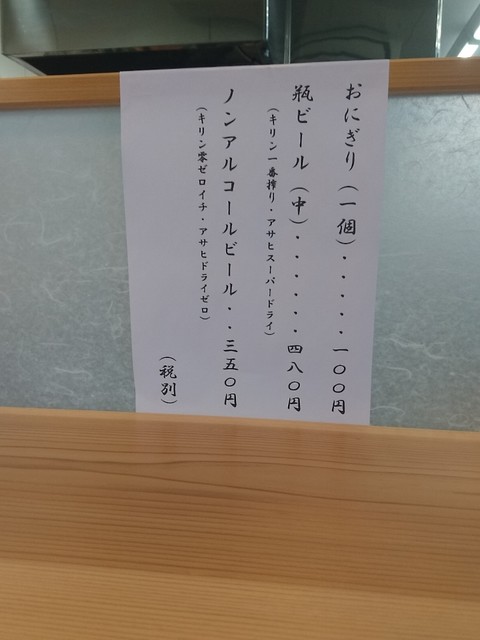 おにぎり（一個）・・・・・一〇〇円
瓶ビール（中）・・・・・・四八〇円
（キリン一番搾り・アサヒスーパードライ）
ノンアルコールビール・・三五〇円
（キリン零ゼロイチ・アサヒドライゼロ）
（税別）